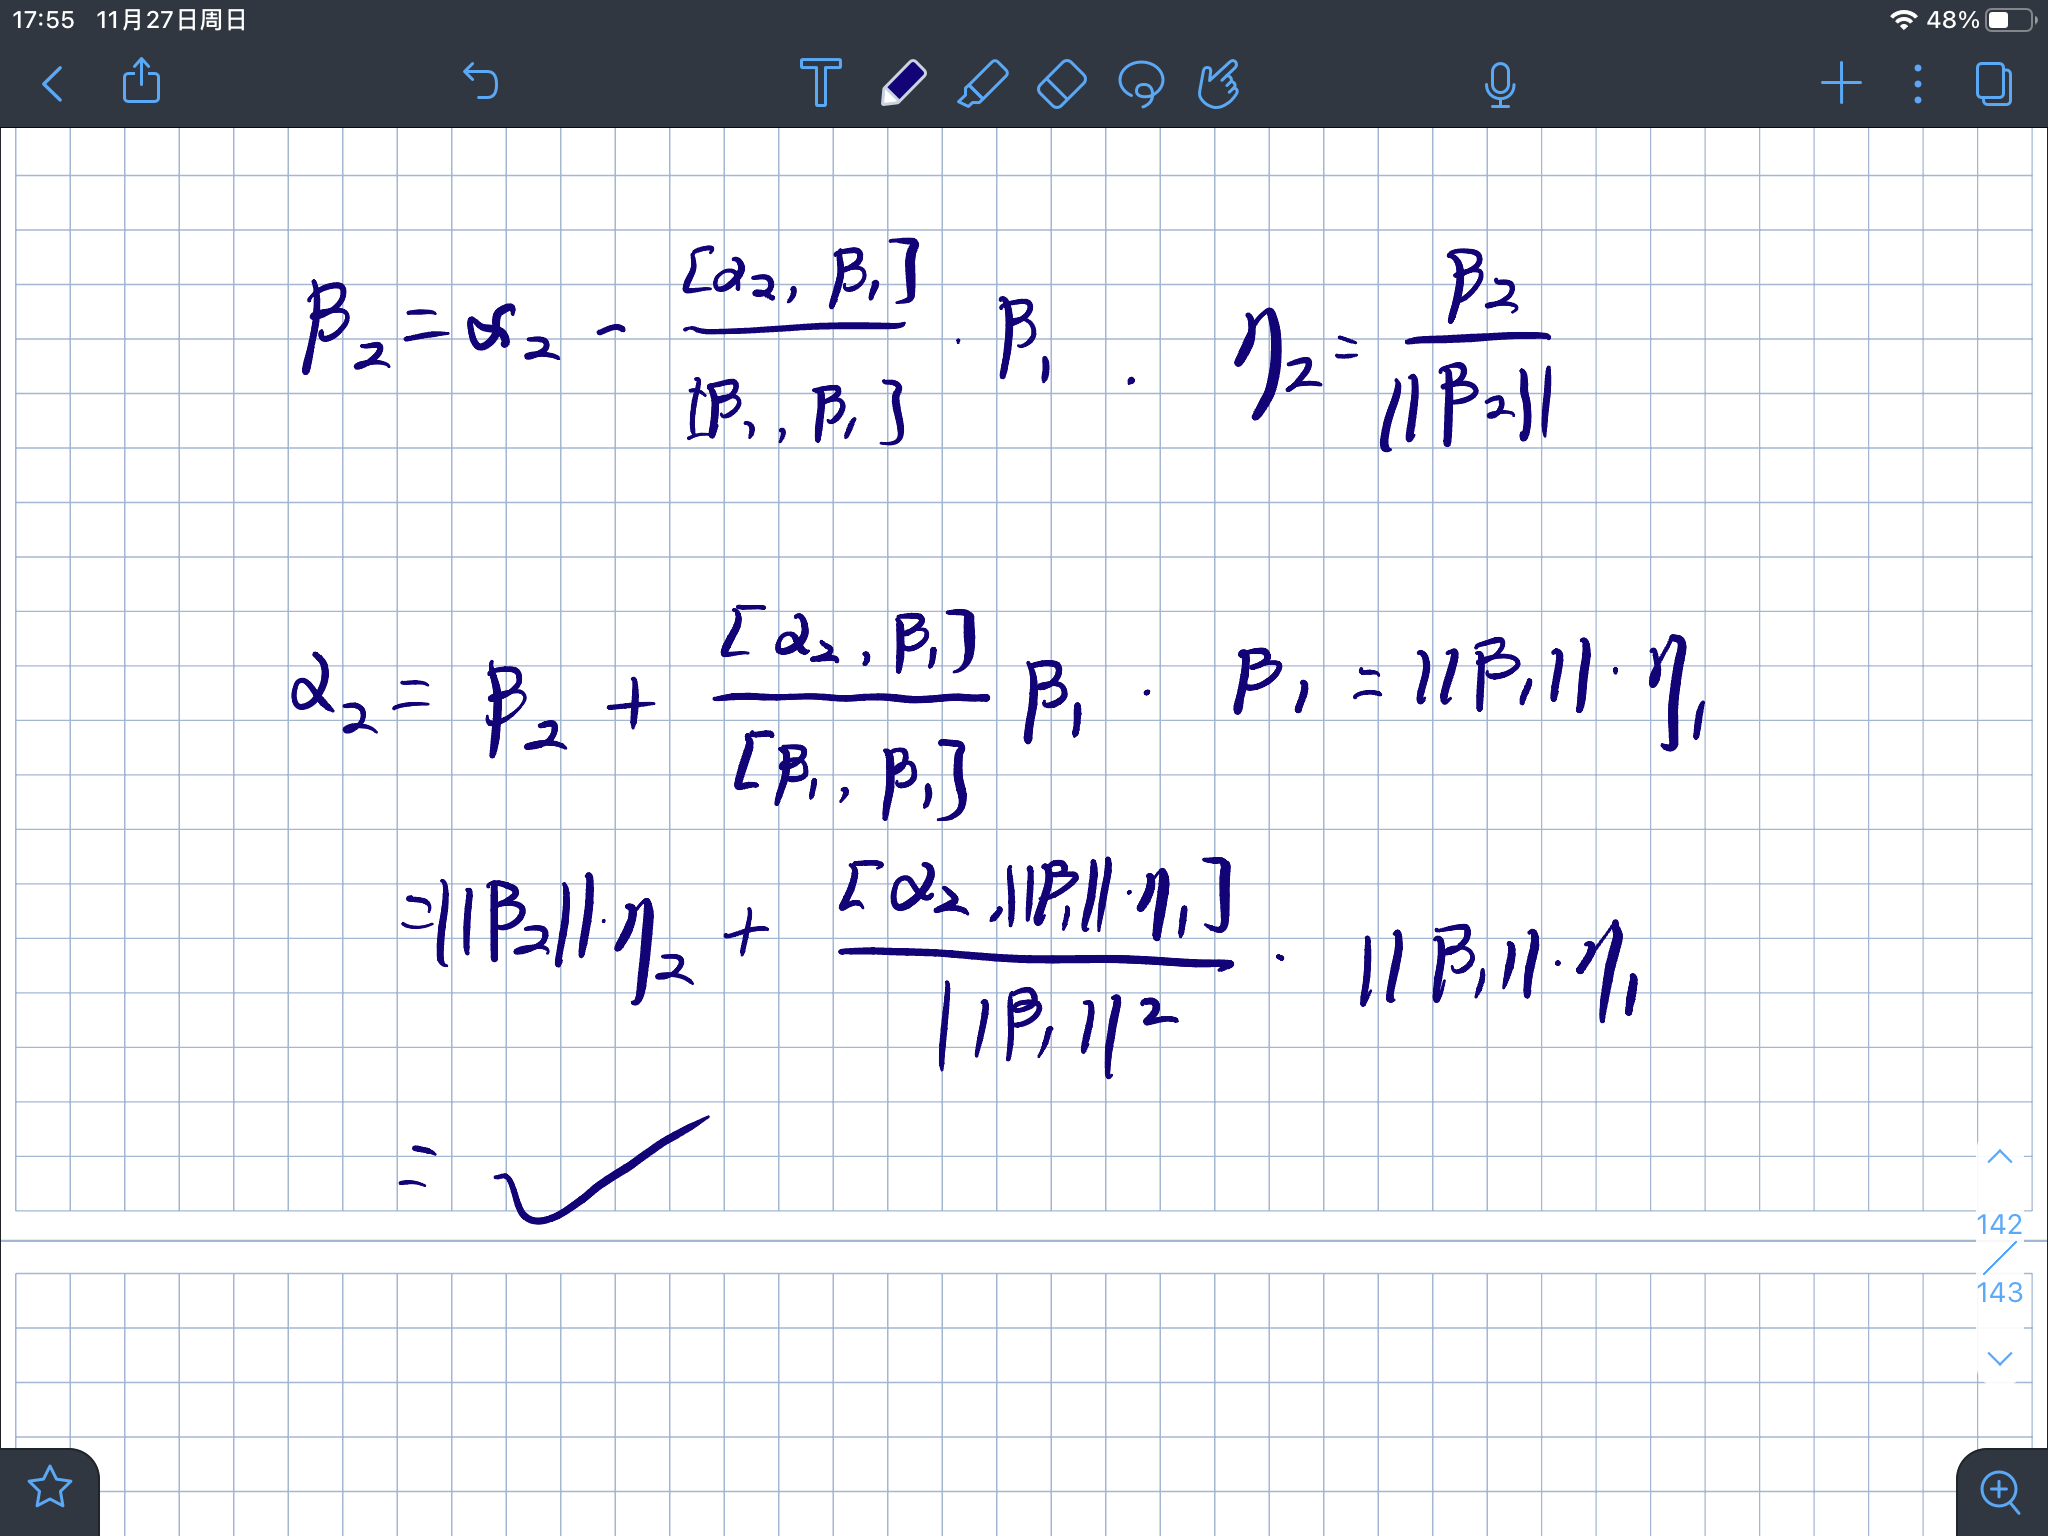 17:55 11月27日周日 48%
T
β₂ = α₂ - [α₂, β₁] / [β₁, β₁] · β₁ . η₂ = β₂ / ||β₂||
α₂ = β₂ + [α₂, β₁] / [β₁, β₁] β₁ . β₁ = ||β₁|| · η₁
= ||β₂|| · η₂ + [α₂, ||β₁|| · η₁] / ||β₁||² · ||β₁|| · η₁
= ✓
142
143